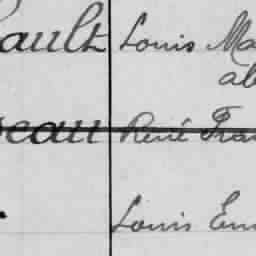 ault Louis Ma
al
eau René Fran
Louis Em